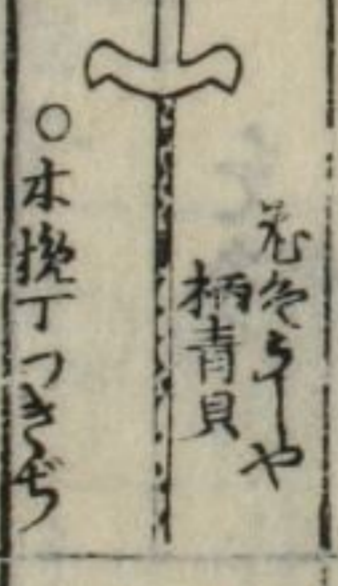 花色らしや
柄青貝
○木挽丁つきぢ